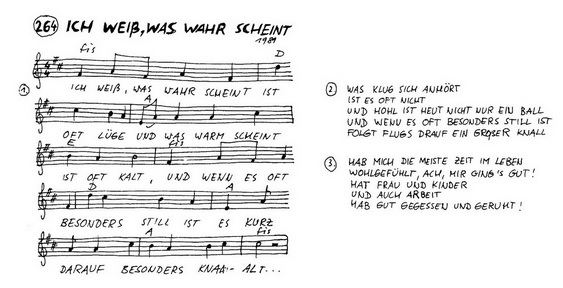 264 ICH WEIß, WAS WAHR SCHEINT
1981
fis D
1 ICH WEIß, WAS WAHR SCHEINT IST
A
OFT LÜGE UND WAS WARM SCHEINT
E fis
IST OFT KALT, UND WENN ES OFT
D A
BESONDERS STILL IST ES KURZ
A fis
DARAUF BESONDERS KNAA'- ALT...
2 WAS KLUG SICH ANHÖRT
IST ES OFT NICHT
UND HOHL IST HEUT NICHT NUR EIN BALL
UND WENN ES OFT BESONDERS STILL IST
FOLGT FLUGS DRAUF EIN GROßER KNALL
3 HAB MICH DIE MEISTE ZEIT IM LEBEN
WOHLGEFÜHLT, ACH, MIR GING'S GUT!
HAT FRAU UND KINDER
UND AUCH ARBEIT
HAB GUT GEGESSEN UND GERUHT!